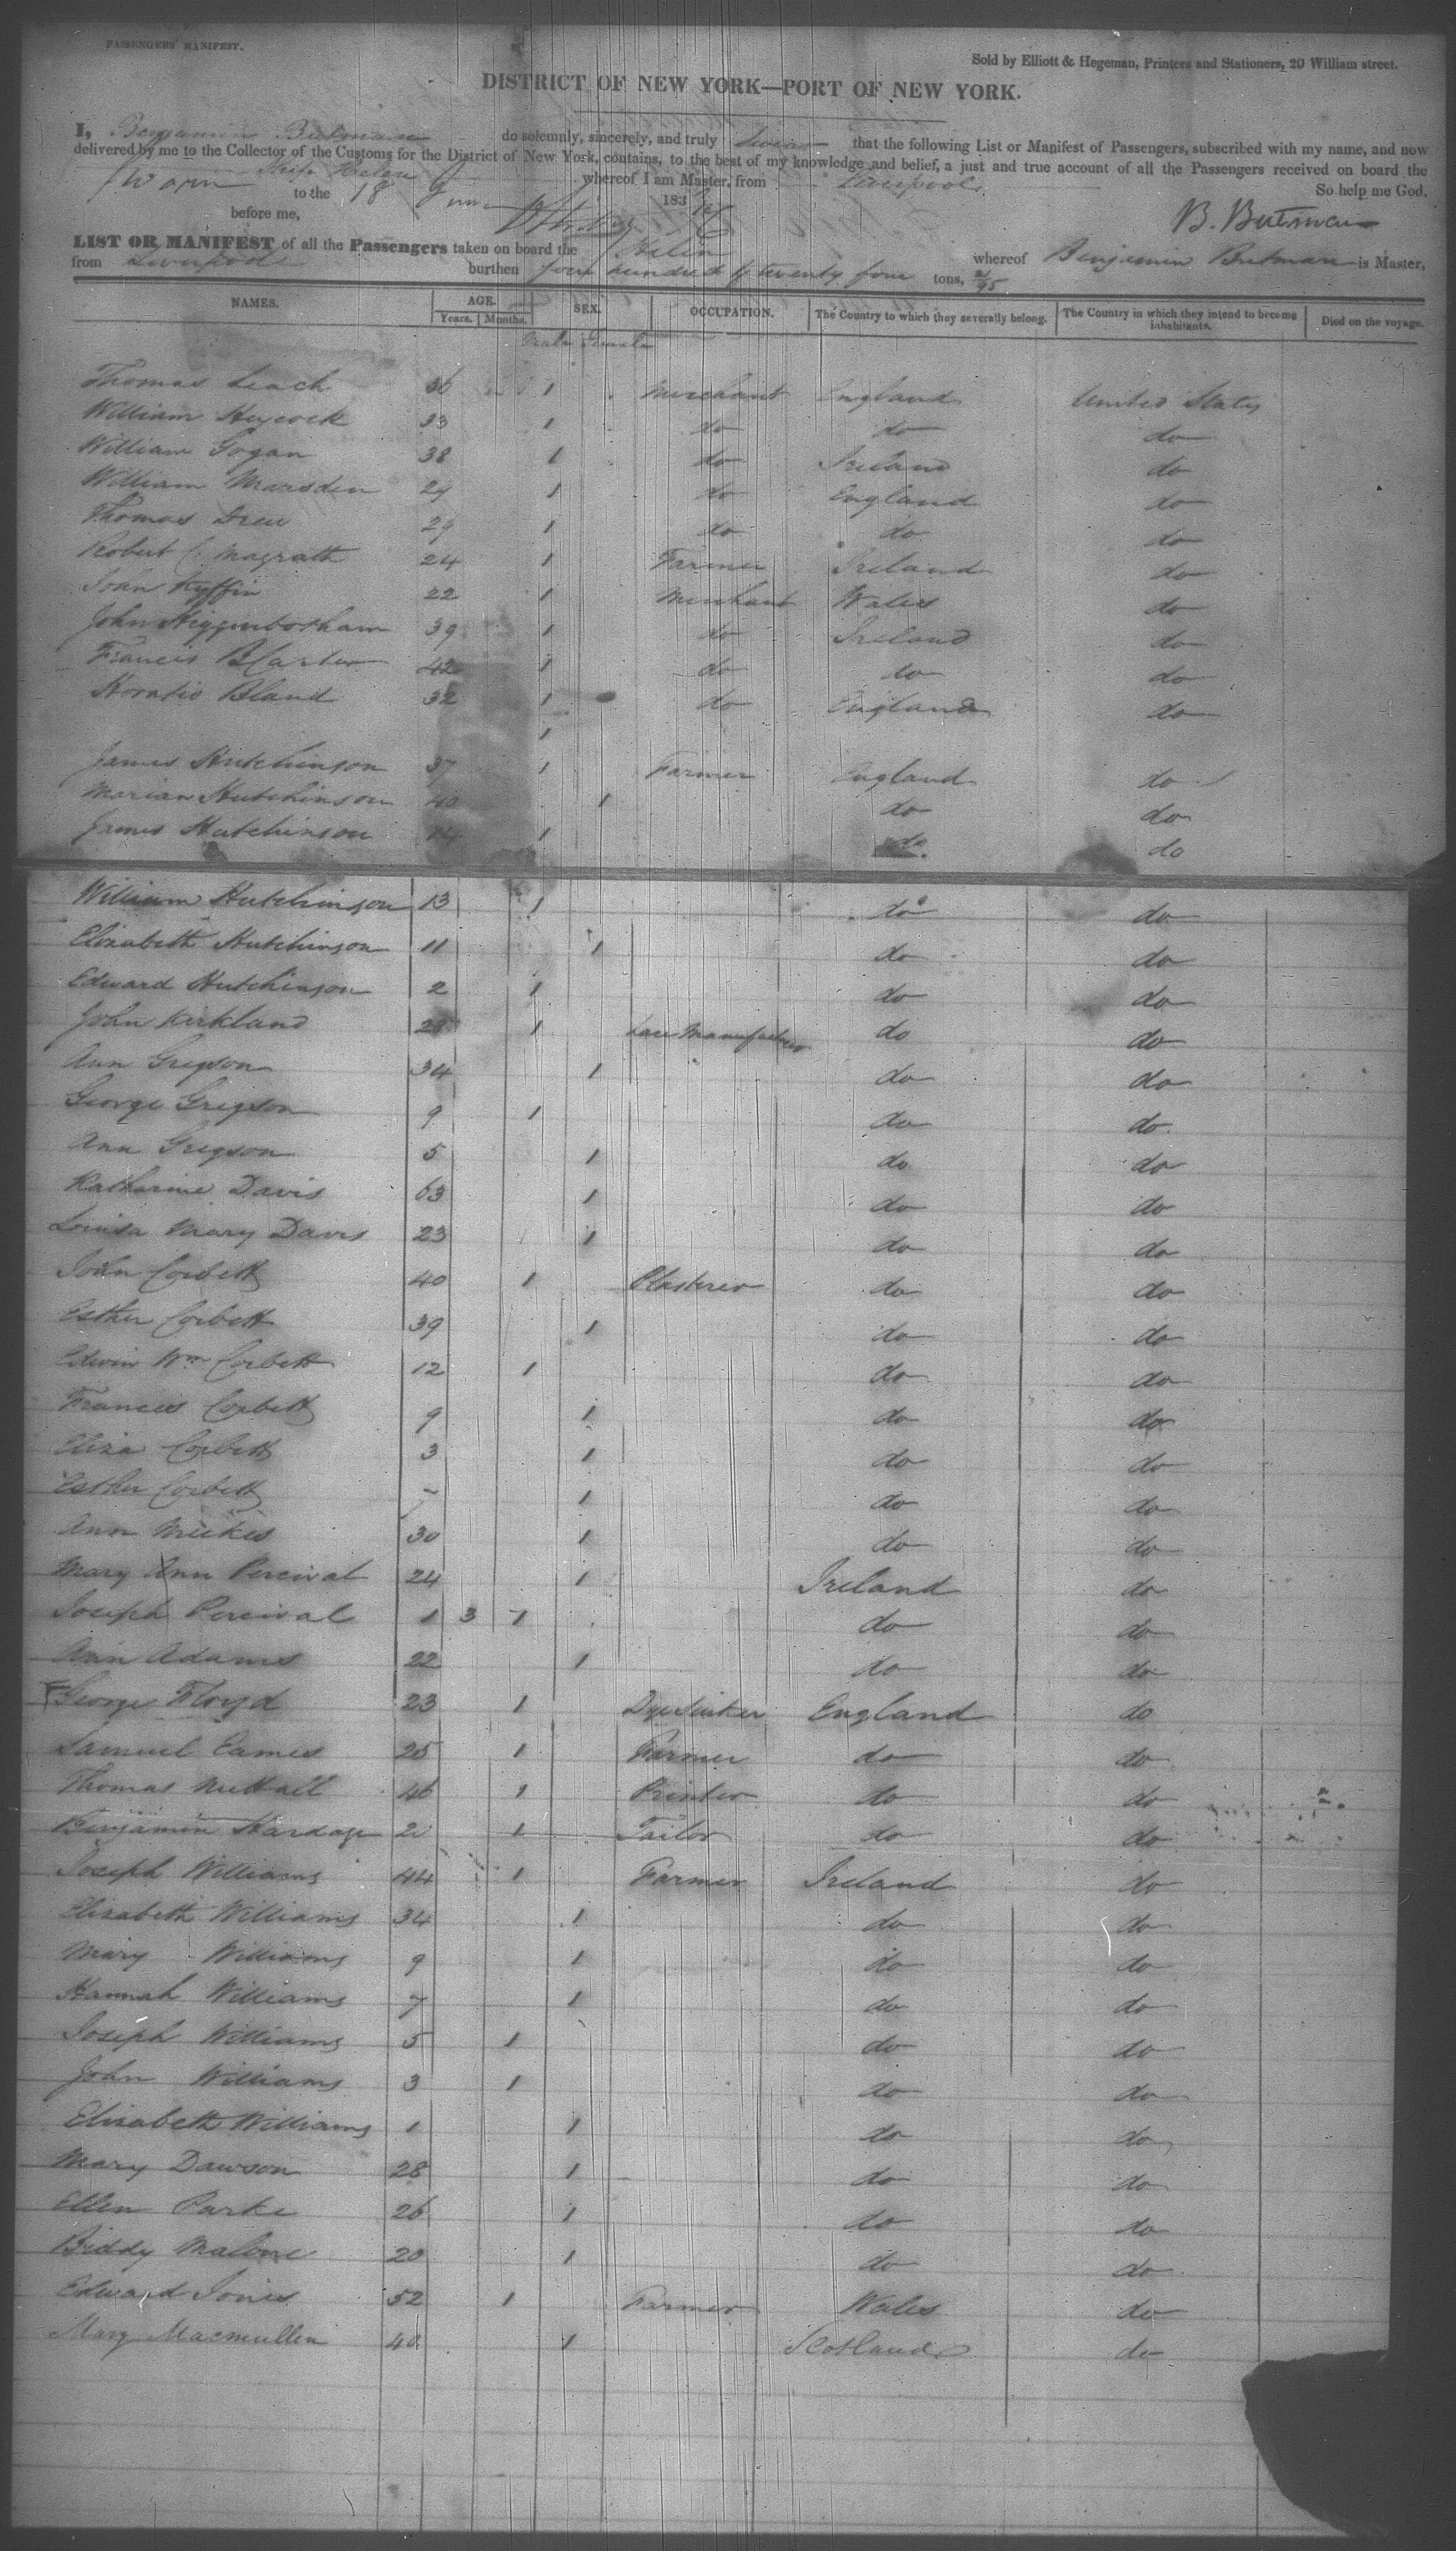 PASSENGERS' MANIFEST.
Sold by Elliott & Hegeman, Printers and Stationers, 20 William street.
DISTRICT OF NEW YORK—PORT OF NEW YORK.
I, Benjamin Butman do solemnly, sincerely, and truly swear that the following List or Manifest of Passengers, subscribed with my name, and now
delivered by me to the Collector of the Customs for the District of New York, contains, to the best of my knowledge and belief, a just and true account of all the Passengers received on board the
Ship Helen whereof I am Master, from Liverpool. So help me God.
Sworn to the 18 June 183
before me,
B. Butman
LIST OR MANIFEST of all the Passengers taken on board the Helen whereof Benjamin Butman is Master,
from Liverpool burthen four hundred & twenty four tons, 21/95
NAMES. AGE. SEX. OCCUPATION. The Country to which they severally belong. The Country in which they intend to become inhabitants. Died on the voyage.
Years. Months.
Male Female
Thomas Leach 36 1 Merchant England United States
William Heycock 33 1 do do do
William Gogan 38 1 do Ireland do
William Marsden 29 1 do England do
Thomas Drew 29 1 do do do
Robert C. Magrath 24 1 Farmer Ireland do
John Kyffin 22 1 Merchant Wales do
John Higginbotham 39 1 do Ireland do
Francis B Carter 42 1 do do do
Horatio Bland 32 1 do England do
1
James Hutchinson 37 1 Farmer England do
Marian Hutchinson 40 1 do do
James Hutchinson 14 1 do do
William Hutchinson 13 1 do do
Elizabeth Hutchinson 11 1 do do
Edward Hutchinson 2 1 do do
John Kirkland 28 1 Lace Manufacturer do do
Ann Gregson 34 1 do do
George Gregson 9 1 do do
Ann Gregson 5 1 do do
Katharine Davis 63 1 do do
Louisa Mary Davis 23 1 do do
John Corbett 40 1 Plasterer do do
Esther Corbett 39 1 do do
Edwin Wm Corbett 12 1 do do
Frances Corbett 9 1 do do
Eliza Corbett 3 1 do do
Esther Corbett 1 do do
Ann Meekes 30 1 do do
Mary Ann Percival 24 1 Ireland do
Joseph Percival 1 3 1 do do
Ann Adams 22 1 do do
George Floyd 23 1 Dye Sinker England do
Samuel Eames 25 1 Farmer do do
Thomas Nuttall 46 1 Printer do do
Benjamin Hardage 1 Tailor do do
Joseph Williams 44 1 Farmer Ireland do
Elizabeth Williams 34 1 do do
Mary Williams 9 1 do do
Hannah Williams 7 1 do do
Joseph Williams 5 1 do do
John Williams 3 1 do do
Elizabeth Williams 1 1 do do
Mary Dawson 28 1 do do
Ellen Parke 26 1 do do
Biddy Malone 20 1 do do
Edward Jones 52 1 Farmer Wales do
Mary Macmullen 40 1 Scotland do